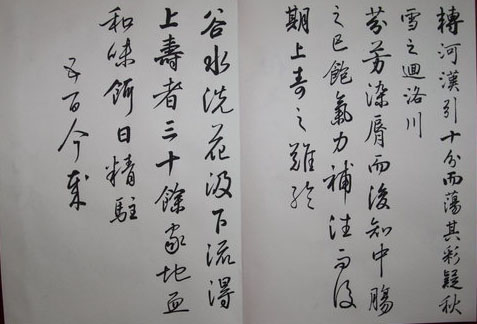 轉河漢引十分而蕩其彩疑秋
雪之廻洛川
芬芳染脣而後知中腸
之已飽氣力補而後
期上壽之難
谷水洗花汲下流得
上壽者三十餘家地血
和味餌日精駐
五百今歳